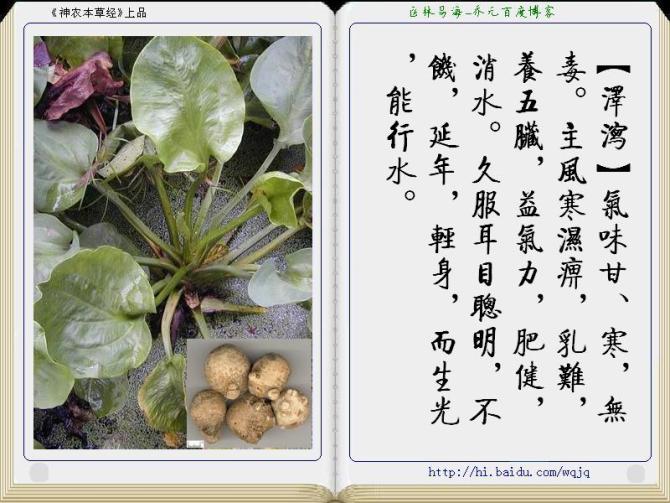 《神农本草经》上品
医林易海_乔元百度博客
【澤瀉】氣味甘、寒，無
毒。主風寒濕痹，乳難，
養五臟，益氣力，肥健，
消水。久服耳目聰明，不
饑，延年，輕身，而生光
，能行水。
http://hi.baidu.com/wqjq